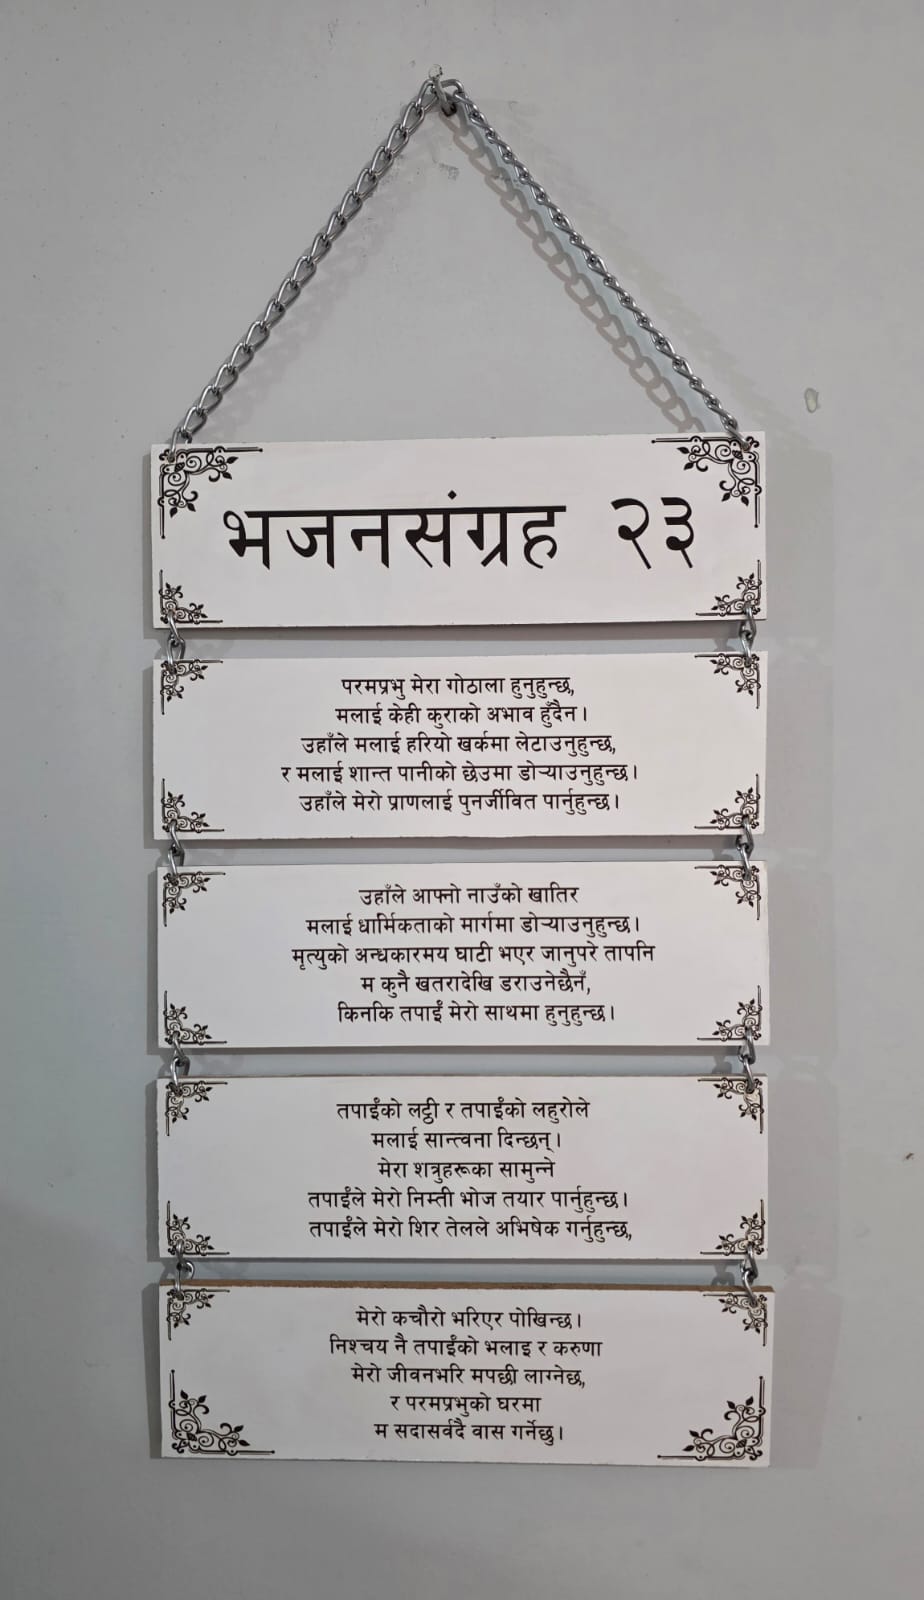 भजनसंग्रह २३
परमप्रभु मेरा गोठाला हुनुहुन्छ,
मलाई केही कुराको अभाव हुँदैन।
उहाँले मलाई हरियो खर्कमा लेटाउनुहुन्छ,
र मलाई शान्त पानीको छेउमा डोऱ्याउनुहुन्छ।
उहाँले मेरो प्राणलाई पुनर्जीवित पार्नुहुन्छ।
उहाँले आफ्नो नाउँको खातिर
मलाई धार्मिकताको मार्गमा डोऱ्याउनुहुन्छ।
मृत्युको अन्धकारमय घाटी भएर जानुपरे तापनि
म कुनै खतरादेखि डराउनेछैनँ,
किनकि तपाईं मेरो साथमा हुनुहुन्छ।
तपाईंको लट्ठी र तपाईंको लहुरोले
मलाई सान्त्वना दिन्छन्।
मेरा शत्रुहरूका सामुन्ने
तपाईंले मेरो निम्ती भोज तयार पार्नुहुन्छ।
तपाईंले मेरो शिर तेलले अभिषेक गर्नुहुन्छ,
मेरो कचौरो भरिएर पोखिन्छ।
निश्चय नै तपाईंको भलाइ र करुणा
मेरो जीवनभरि मपछी लाग्नेछ,
र परमप्रभुको घरमा
म सदासर्वदै वास गर्नेछु।